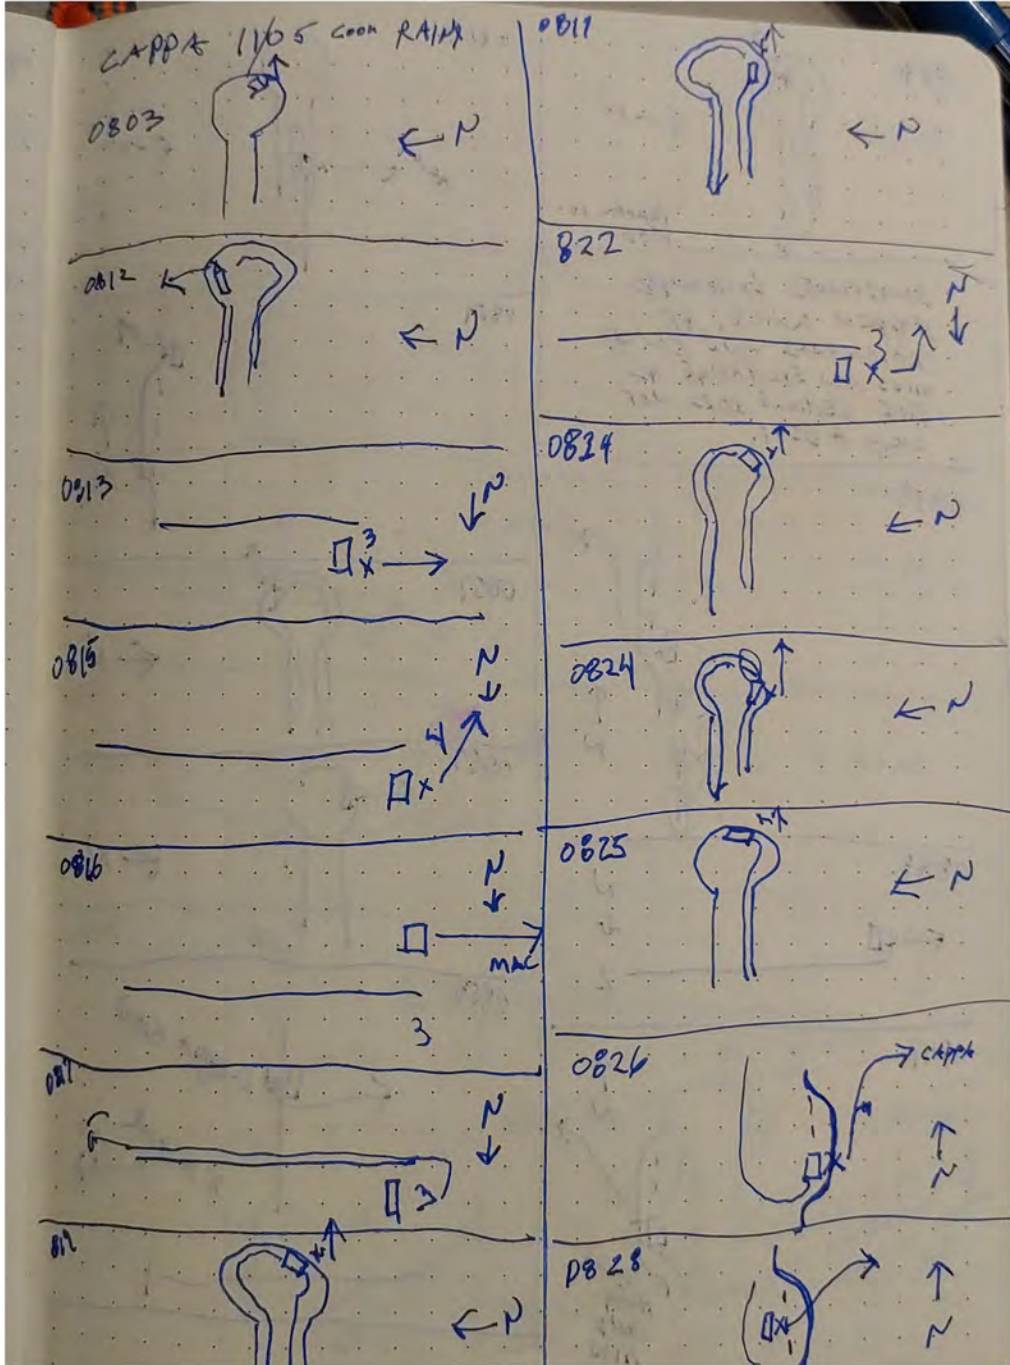 CAPPA 1165 COON RAPIDS
0803
N
0812
N
0813
N
3
X
0815
N
4
X
0816
N
MAC
3
0817
N
3
819
X
N
0817
X
N
822
N
3
X
0824
X
N
0824
X
N
0825
X
N
0826
CAPPA
X
N
0828
X
N